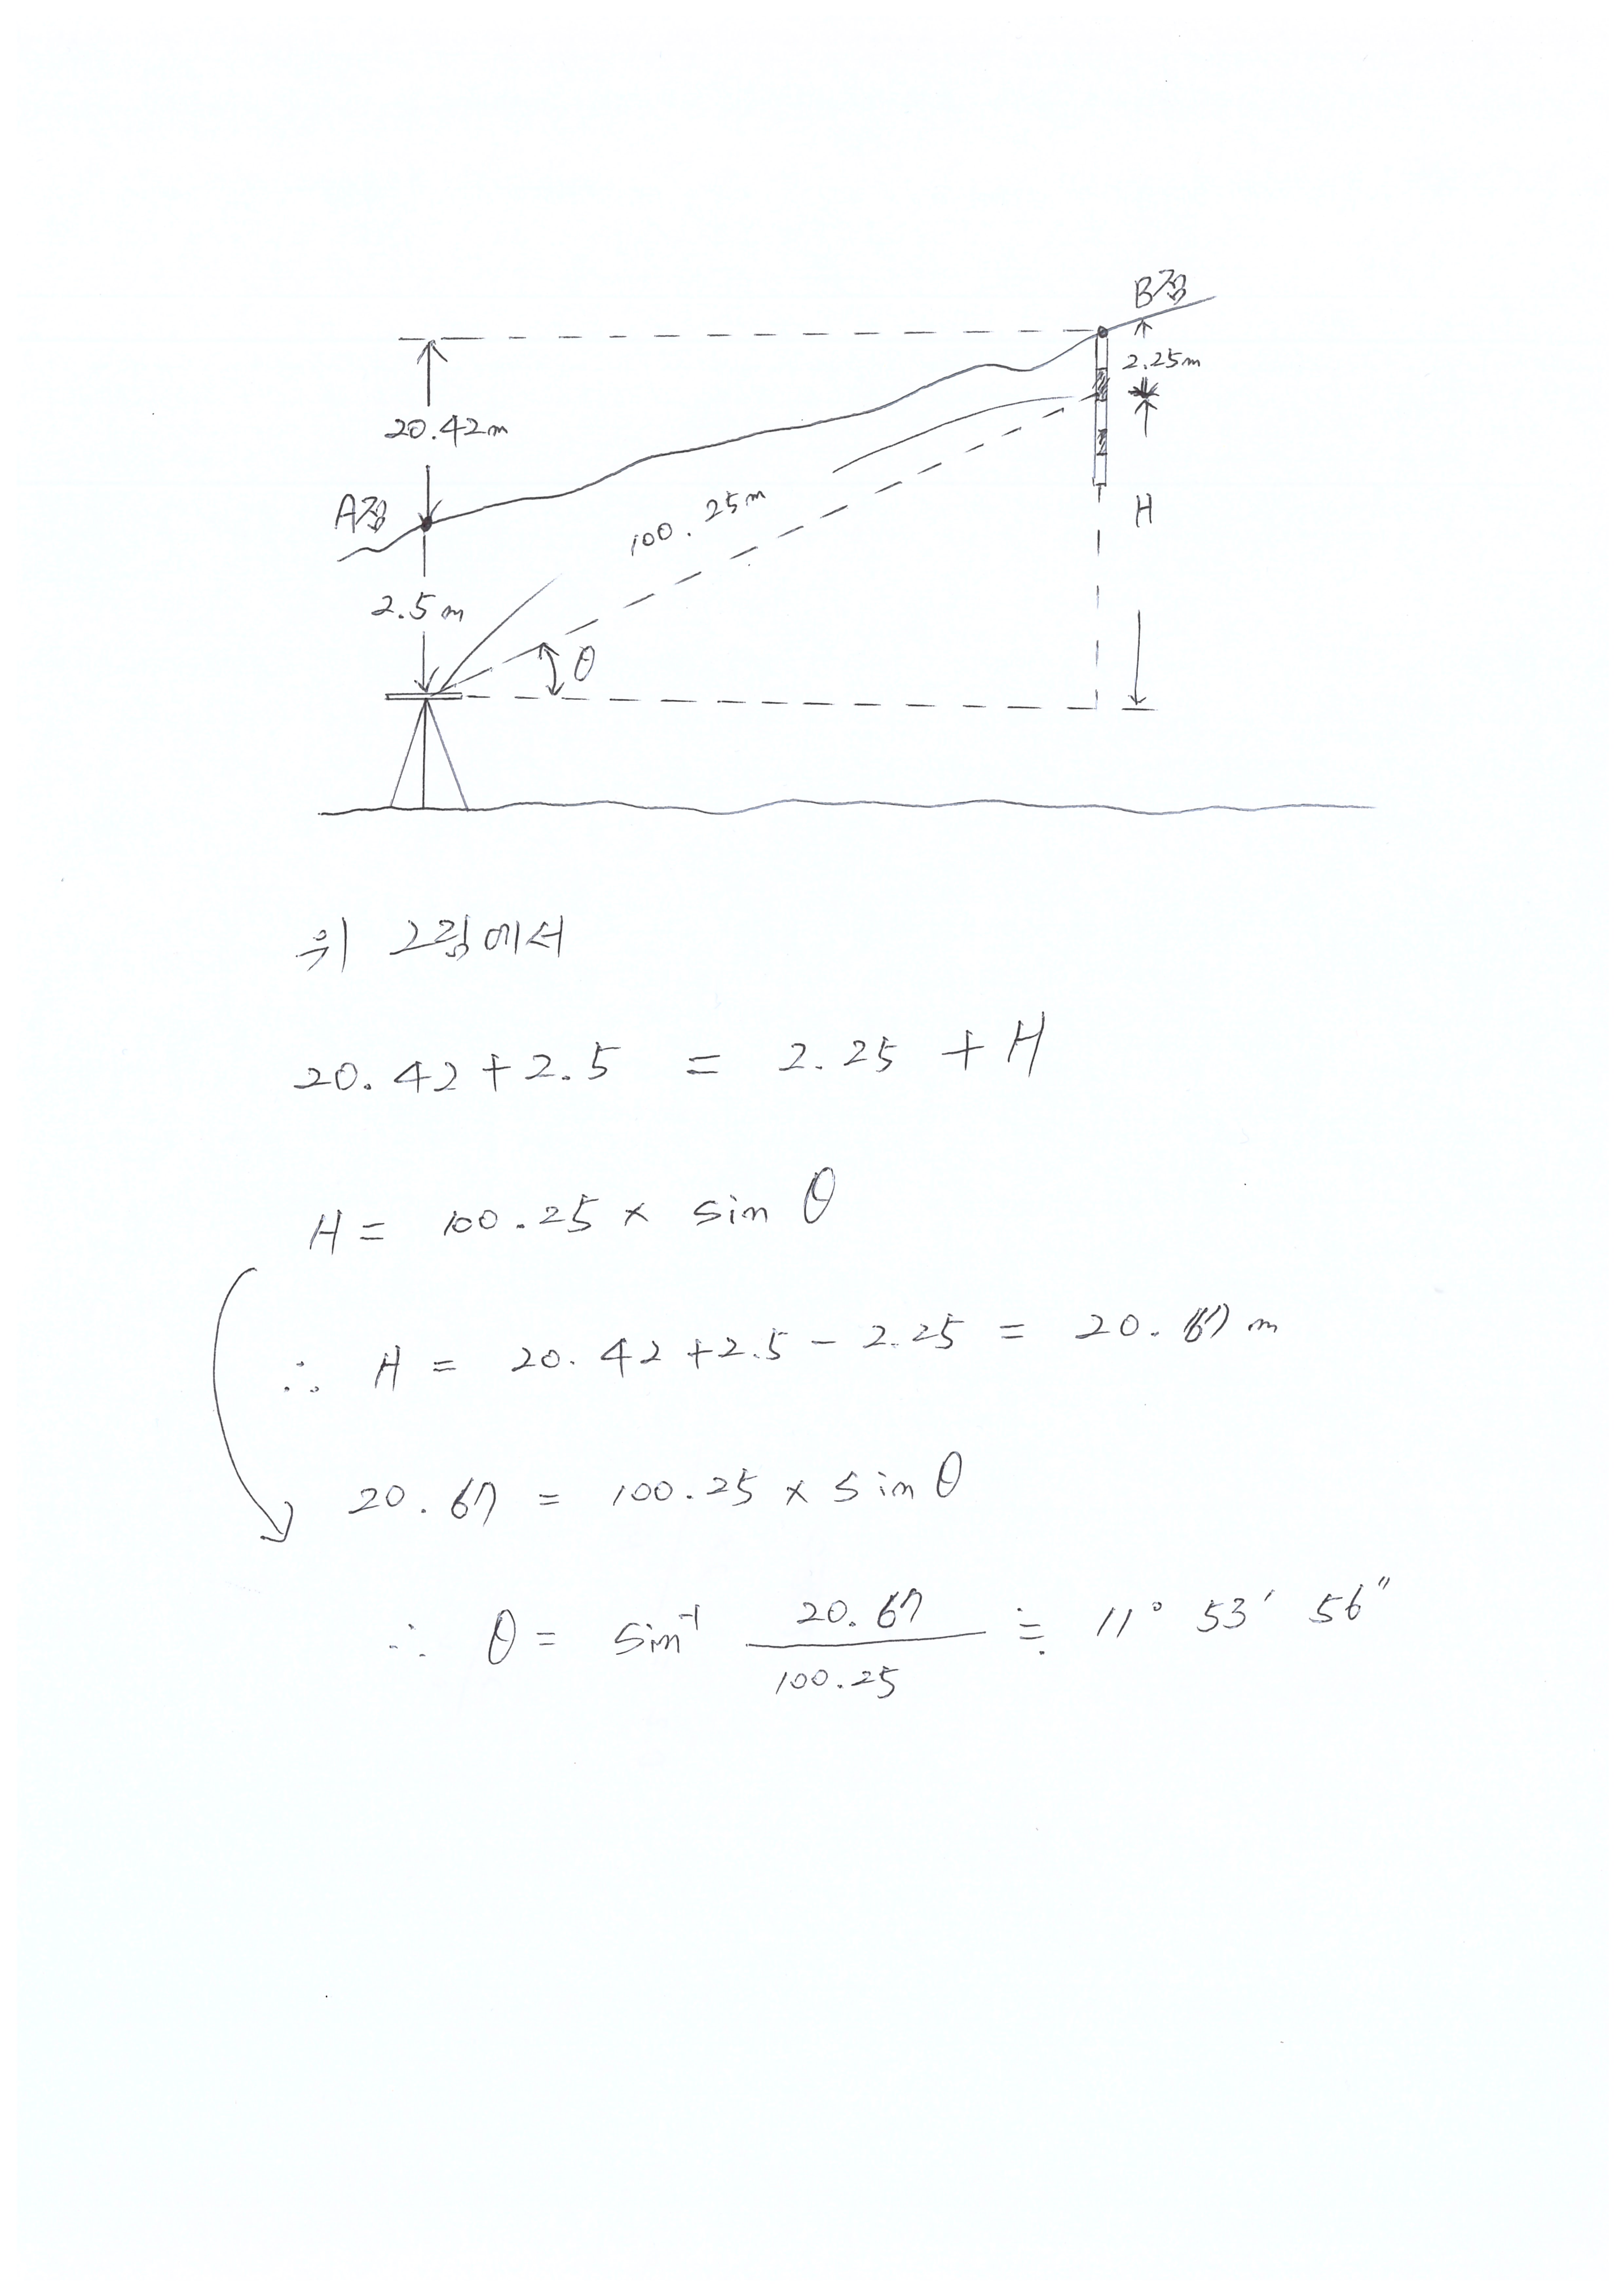 B점
2.25m
20.42m
A점
100.25m
H
2.5m
θ
위 그림에서
20.42+2.5 = 2.25 + H
H = 100.25 × sin θ
∴ H = 20.42+2.5 - 2.25 = 20.67 m
20.67 = 100.25 × sin θ
∴ θ = sin⁻¹ 20.67 / 100.25 ≒ 11° 53′ 56″